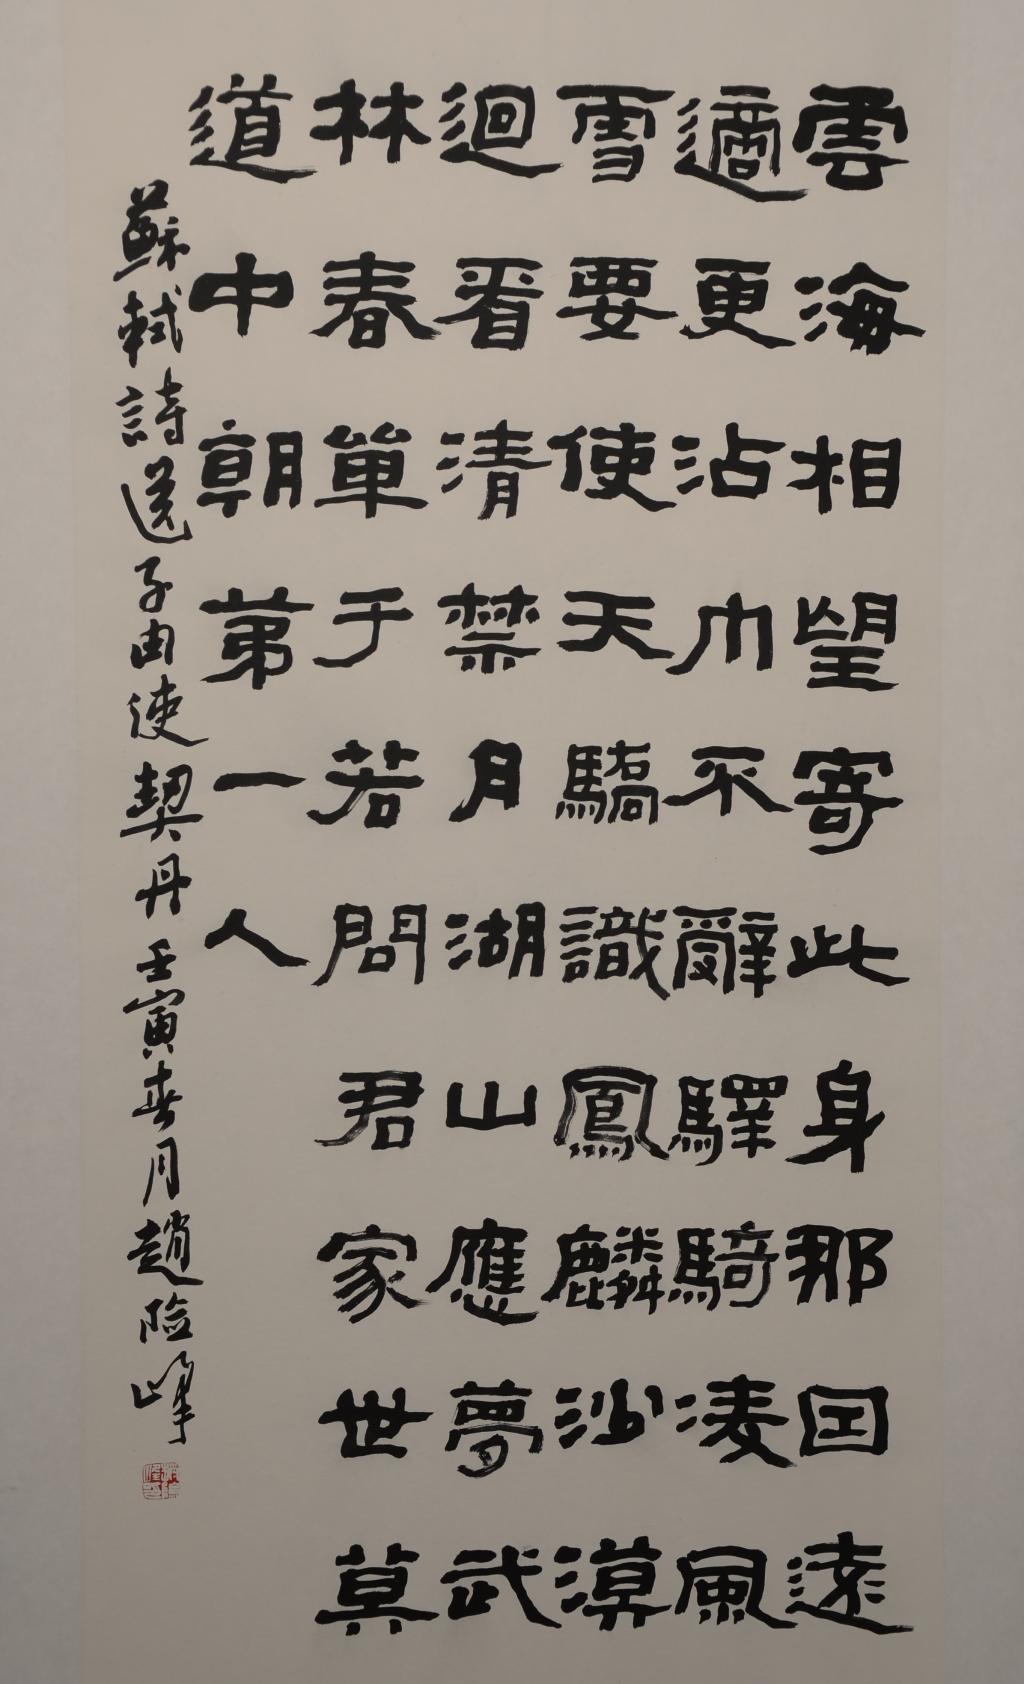 雲海相望寄此身那因遠
適更沾巾不辭驛騎凌風
雪要使天驕識鳳麟沙漠
迴看清禁月湖山應夢武
林春單于若問君家世莫
道中朝第一人
蘇軾詩送子由使契丹壬寅春月趙险峰